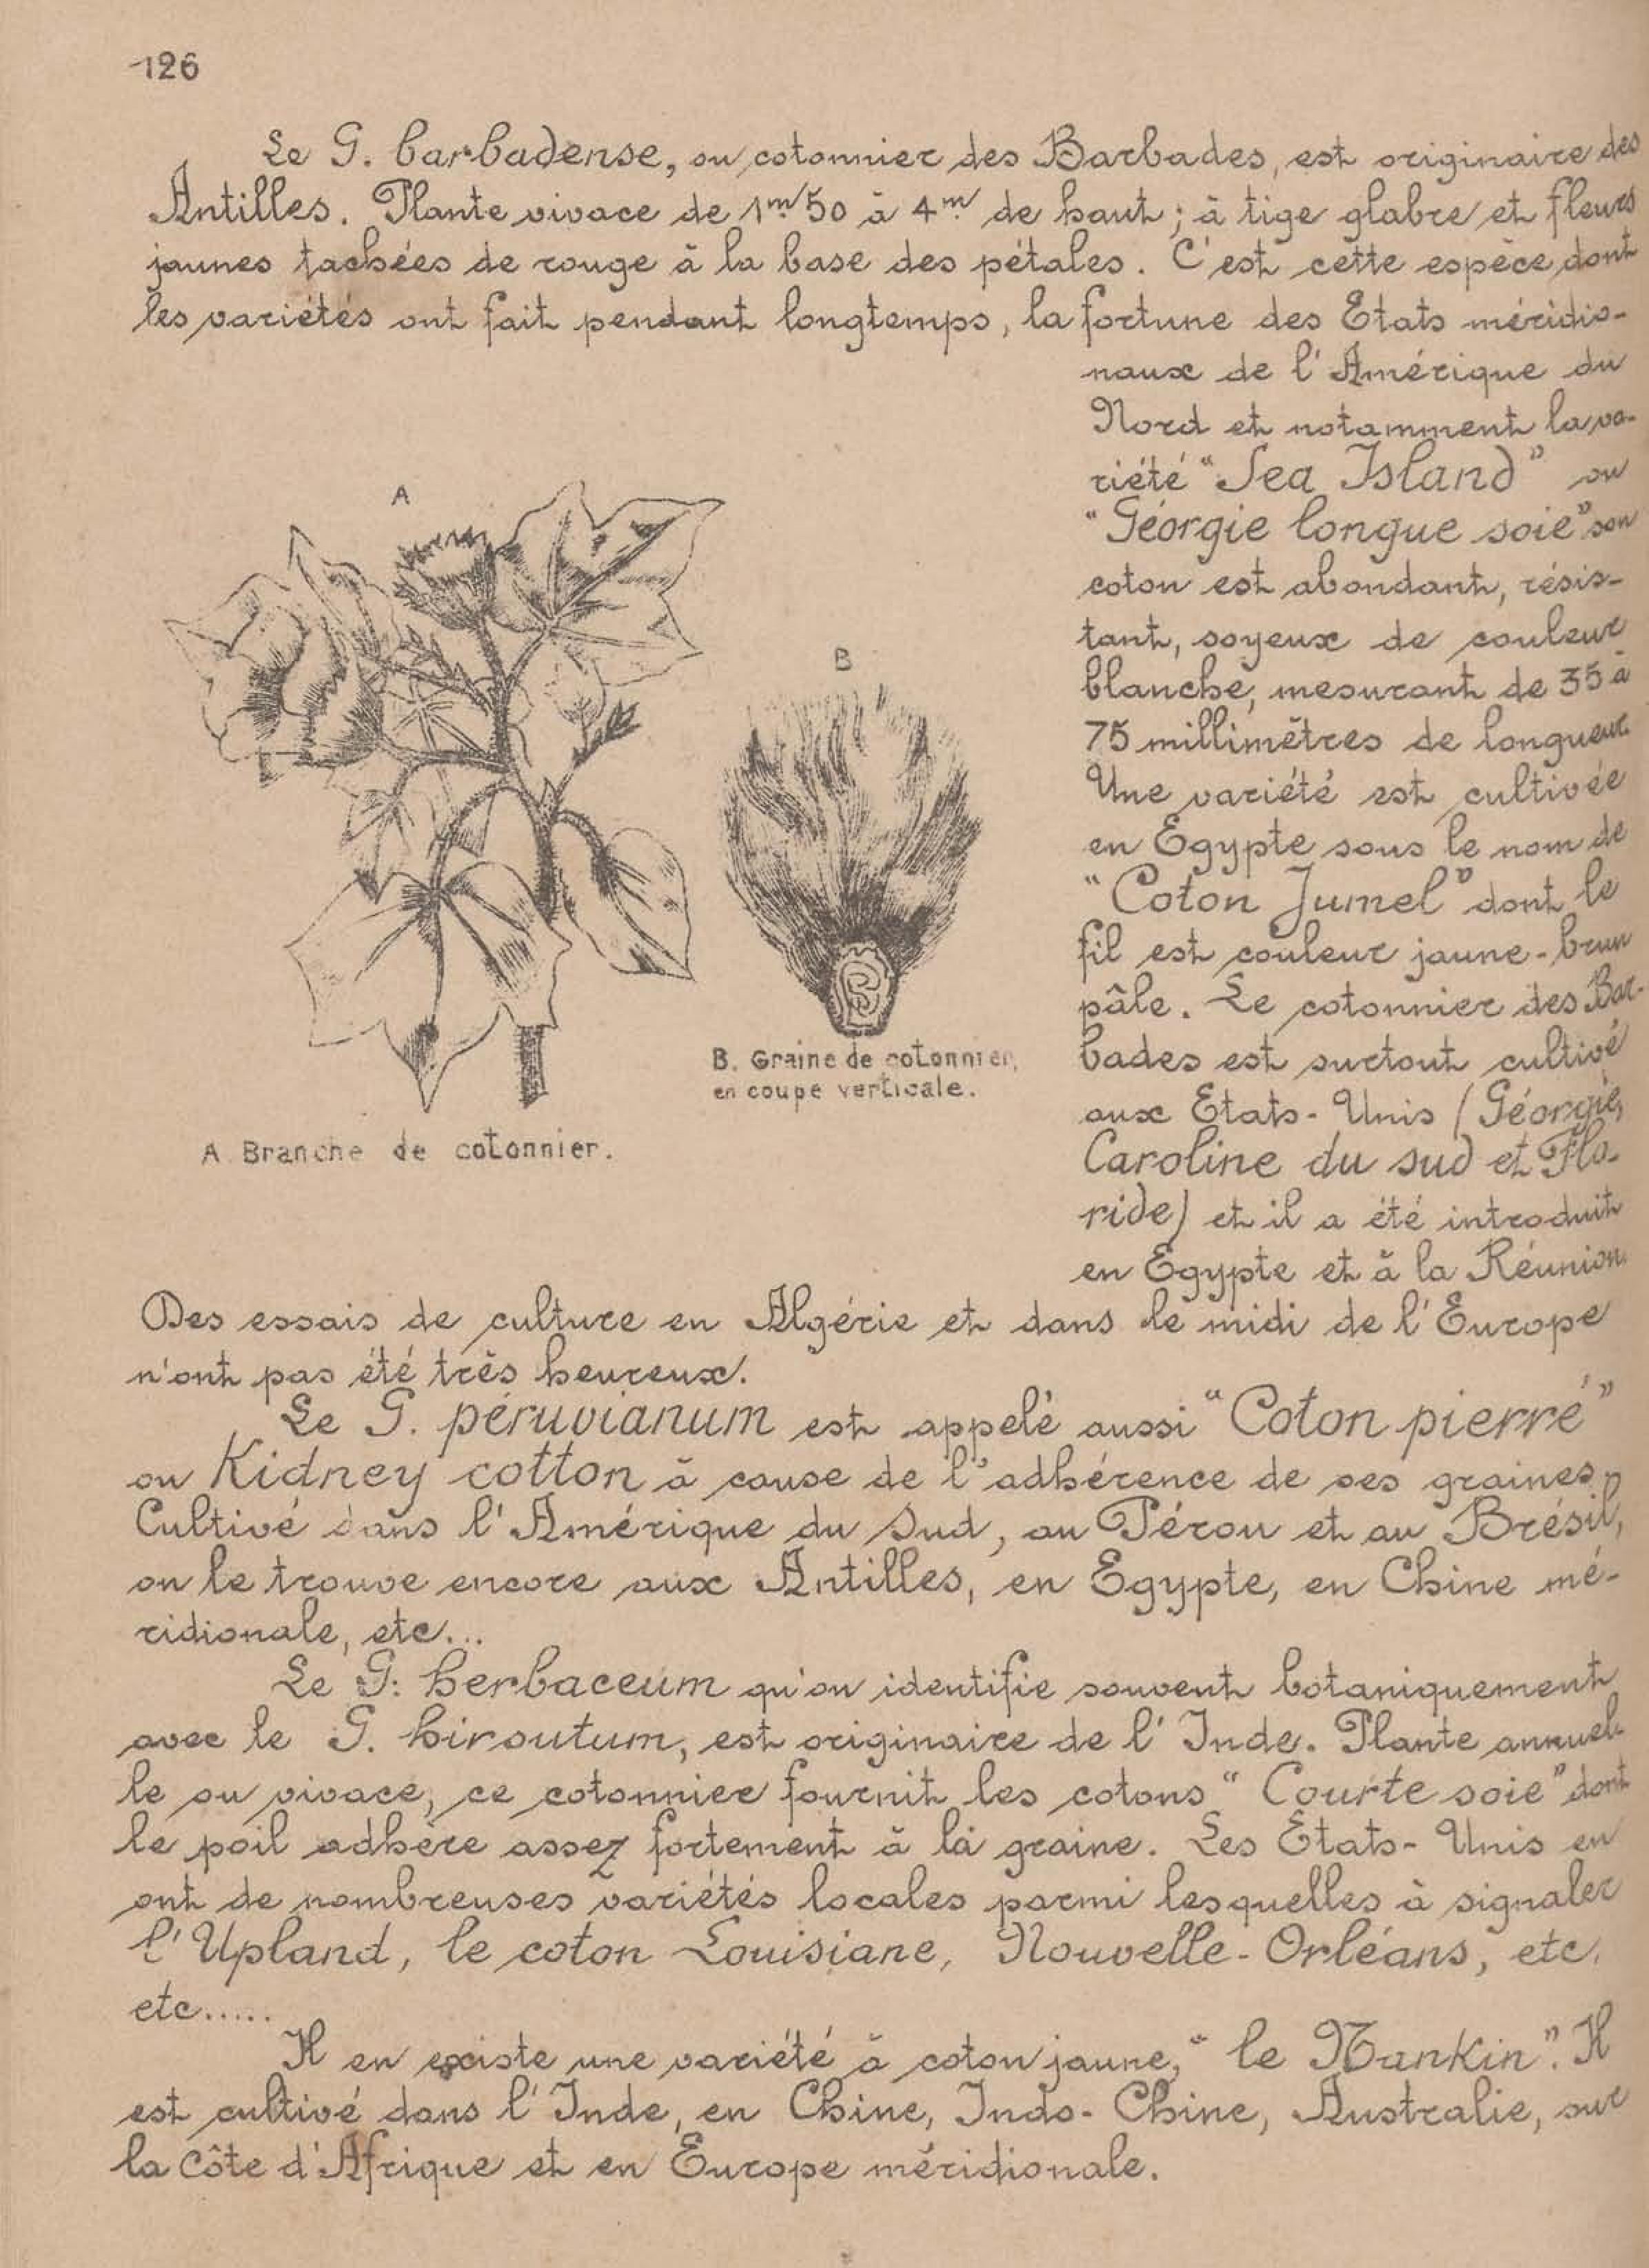 126
Le G. barbadense, ou cotonnier des Barbades, est originaire des
Antilles. Plante vivace de 1m50 à 4m de haut ; à tige glabre et fleurs
jaunes tachées de rouge à la base des pétales. C'est cette espèce dont
les variétés ont fait pendant longtemps, la fortune des Etats méridio-
naux de l'Amérique du
Nord et notamment la va-
riété "Sea Island" ou
"Géorgie longue soie" son
coton est abondant, résis-
tant, soyeux de couleur
blanche, mesurant de 35 à
75 millimètres de longueur.
Une variété est cultivée
en Egypte sous le nom de
"Coton Jumel" dont le
fil est couleur jaune-brun
pâle. Le cotonnier des Bar-
bades est surtout cultivé
aux Etats-Unis (Géorgie,
Caroline du sud et Flo-
ride) et il a été introduit
en Egypte et à la Réunion.
A
B
B. Graine de cotonnier,
en coupe verticale.
A. Branche de cotonnier.
Des essais de culture en Algérie et dans le midi de l'Europe
n'ont pas été très heureux.
Le G. péruvianum est appelé aussi "Coton pierre"
ou Kidney cotton à cause de l'adhérence de ses graines.
Cultivé dans l'Amérique du Sud, au Pérou et au Brésil,
on le trouve encore aux Antilles, en Egypte, en Chine mé-
ridionale, etc...
Le G. herbaceum qu'on identifie souvent botaniquement
avec le G. hirsutum, est originaire de l'Inde. Plante annuel-
le ou vivace, ce cotonnier fournit les cotons "Courte soie" dont
le poil adhère assez fortement à la graine. Les Etats-Unis en
ont de nombreuses variétés locales parmi lesquelles à signaler
l'Upland, le coton Louisiane, Nouvelle-Orléans, etc.
etc.....
Il en existe une variété à coton jaune, "le Nankin". Il
est cultivé dans l'Inde, en Chine, Indo-Chine, Australie, sur
la Côte d'Afrique et en Europe méridionale.